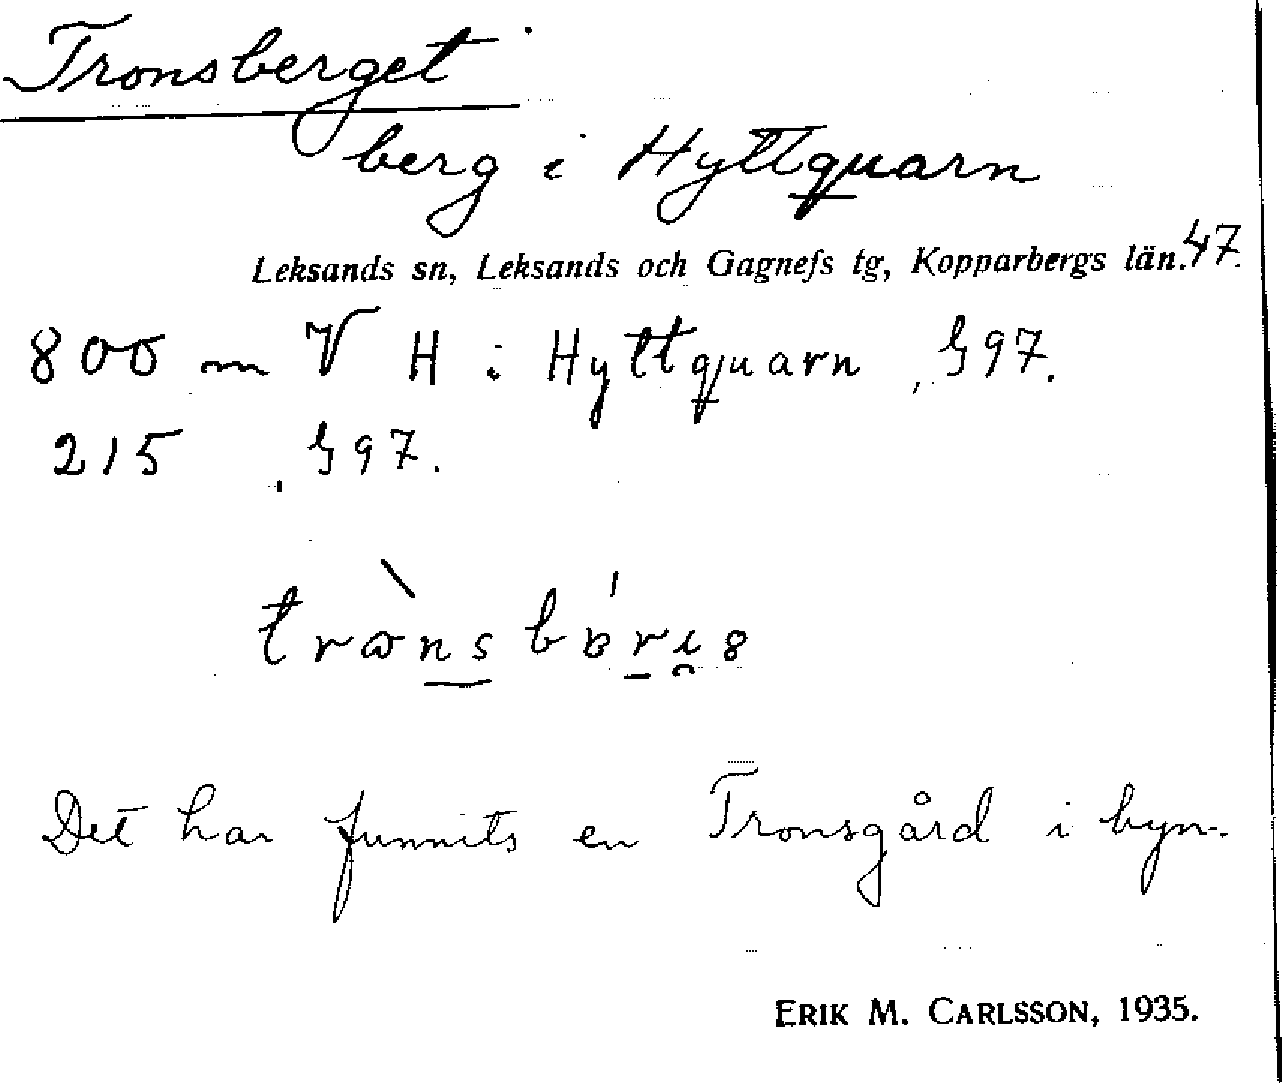 Tronsberget
berg i Hyttquarn
Leksands sn, Leksands och Gagnefs tg, Kopparbergs län. 47.
800 m V H i Hyttquarn, § 97.
215, § 97.
Det har funnits en Tronsgård i byn.
ERIK M. CARLSSON, 1935.